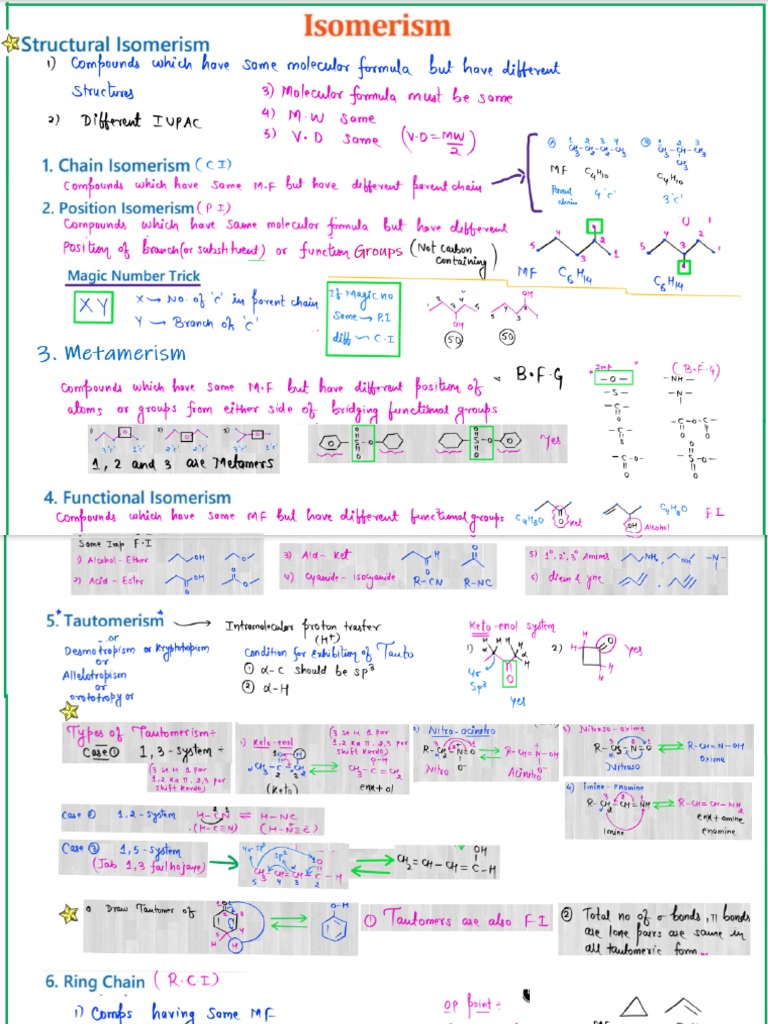 Isomerism
Structural Isomerism
1) Compounds which have same molecular formula but have different
structures
3) Molecular formula must be same
2) Different IUPAC
4) M.W same
5) V.D same (V.D = MW/2)
1. Chain Isomerism (CI)
Compounds which have same M.F but have different parent chain
1 2 3 4
CH3-CH2-CH2-CH3
1 2 3
CH3-CH-CH3
CH3
MF C4H10 C4H10
Parent chain 4 'c' 3 'c'
2. Position Isomerism (PI)
Compounds which have same molecular formula but have different
Position of branch (or substituent) or function Groups (Not carbon containing)
MF C6H14 C6H14
Magic Number Trick
XY
X → No. of 'c' in parent chain
Y → Branch of 'c'
If Magic no
Same → P.I
diff → C.I
OH OH
50 50
3. Metamerism
Compounds which have same M.F but have different position of
atoms or groups from either side of bridging functional groups
B.F.G
Imp
(B.F.G)
-O- -NH-
-S- -N-
1) 2) 3)
3'c 1'c 2'c 2'c 3'c 1'c
1, 2 and 3 are Metamers
Yes
4. Functional Isomerism
Compounds which have same MF but have different functional groups
C4H8O Ket
OH Alcohol C4H8O FI
Some Imp F.I
1) Alcohol - Ether
2) Acid - Ester
3) Ald - Ket
4) Cyanide - isocyanide R-CN R-NC
5) 1°, 2°, 3° Amines
6) diene & yne
5. Tautomerism
or
Desmotropism or Kryptotopism
or
Allelotropism
or
orototropy or
Intramolecular proton trasfer
(H+)
Condition for exhibition of Tauto
① α-C should be sp3
② α-H
Keto-enol system
1) 2) Yes
4σ
Sp3
yes
Types of Tautomerism÷
Case ① 1, 3-system ÷
(3 se H 1 par
1,2 ka π 2,3 par
shift kardo)
1) Keto-enol
(3 se H 1 par
1,2 ka π 2,3 par
shift kardo)
(Keto) enx+ol
2) Nitro-acinitro
Nitro Acinitro
3) Nitroso-oxime
R-CH=N-OH
Nitroso oxime
4) imine-enamine
R-CH=CH-NH2
enx+amine
Imine enamine
Case ② 1,2-system H-CN ⇌ H-NC
(H-C≡N) (H-N≡C)
Case ③ 1,5-system
(Jab 1,3 fail hojaye)
4σ sp3 sp2
5 4 3 2
OH
CH2=CH-CH=C-H
Draw Tautomer of
O-H
① Tautomers are also FI
② Total no of σ bonds, π bonds
are lone pairs are same in
all tautomeric form...
6. Ring Chain (R.C.I)
1) Comps having Same MF
OP point:
MF